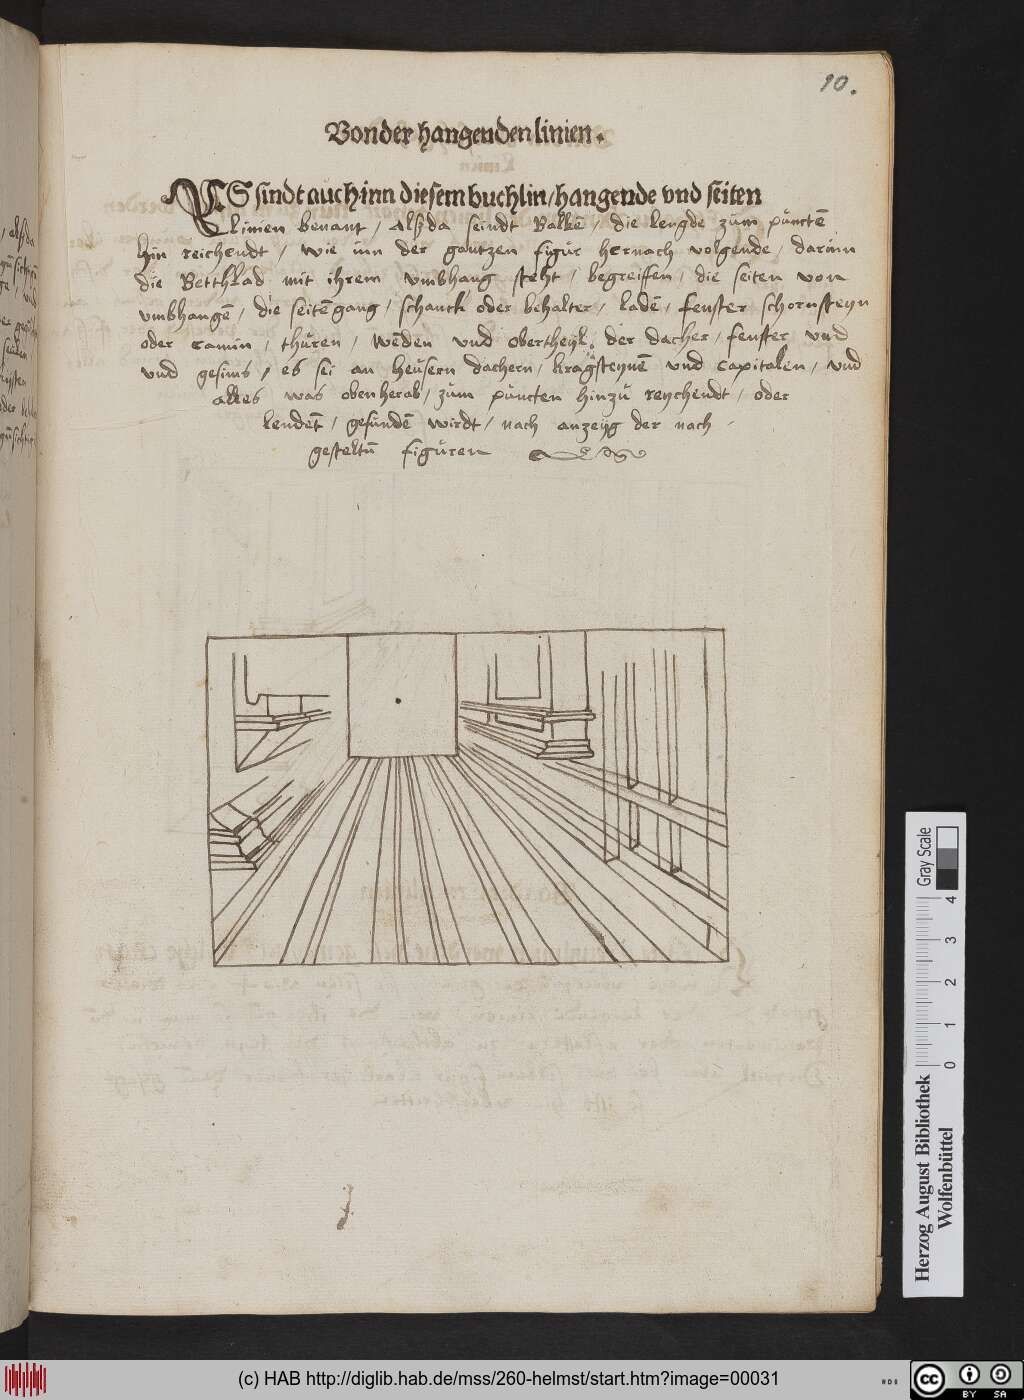 10.
Von der hangenden linien.
ES sindt auch inn diesem buchlin / hangende vnd seiten
linien benant / Alß da seindt Balkē / die lengde zům půnctē
hin reichendt / wie inn der gantzen figůr hernach volgende / darinn
die Betthlad mit ihrem vmbhang steht / begreiffen / die seiten von
vmbhangē / die seitēgang / schanck oder behalter / ladē / fenster schornsteyn
oder camin / thůren / wēden vnd obertheyl der dacher / fenster vnd
vnd gesims / es sei an heůsern dachern / kragsteynē vnd capitalen / vnd
alles was oben herab / zům půncten hinzů reychendt / oder
lendēt / gefůndē wirdt / nach anzeyg der nach
gesteltē figůren
Herzog August Bibliothek
Wolfenbüttel
Gray Scale
0 1 2 3 4
(c) HAB http://diglib.hab.de/mss/260-helmst/start.htm?image=00031
cc BY SA